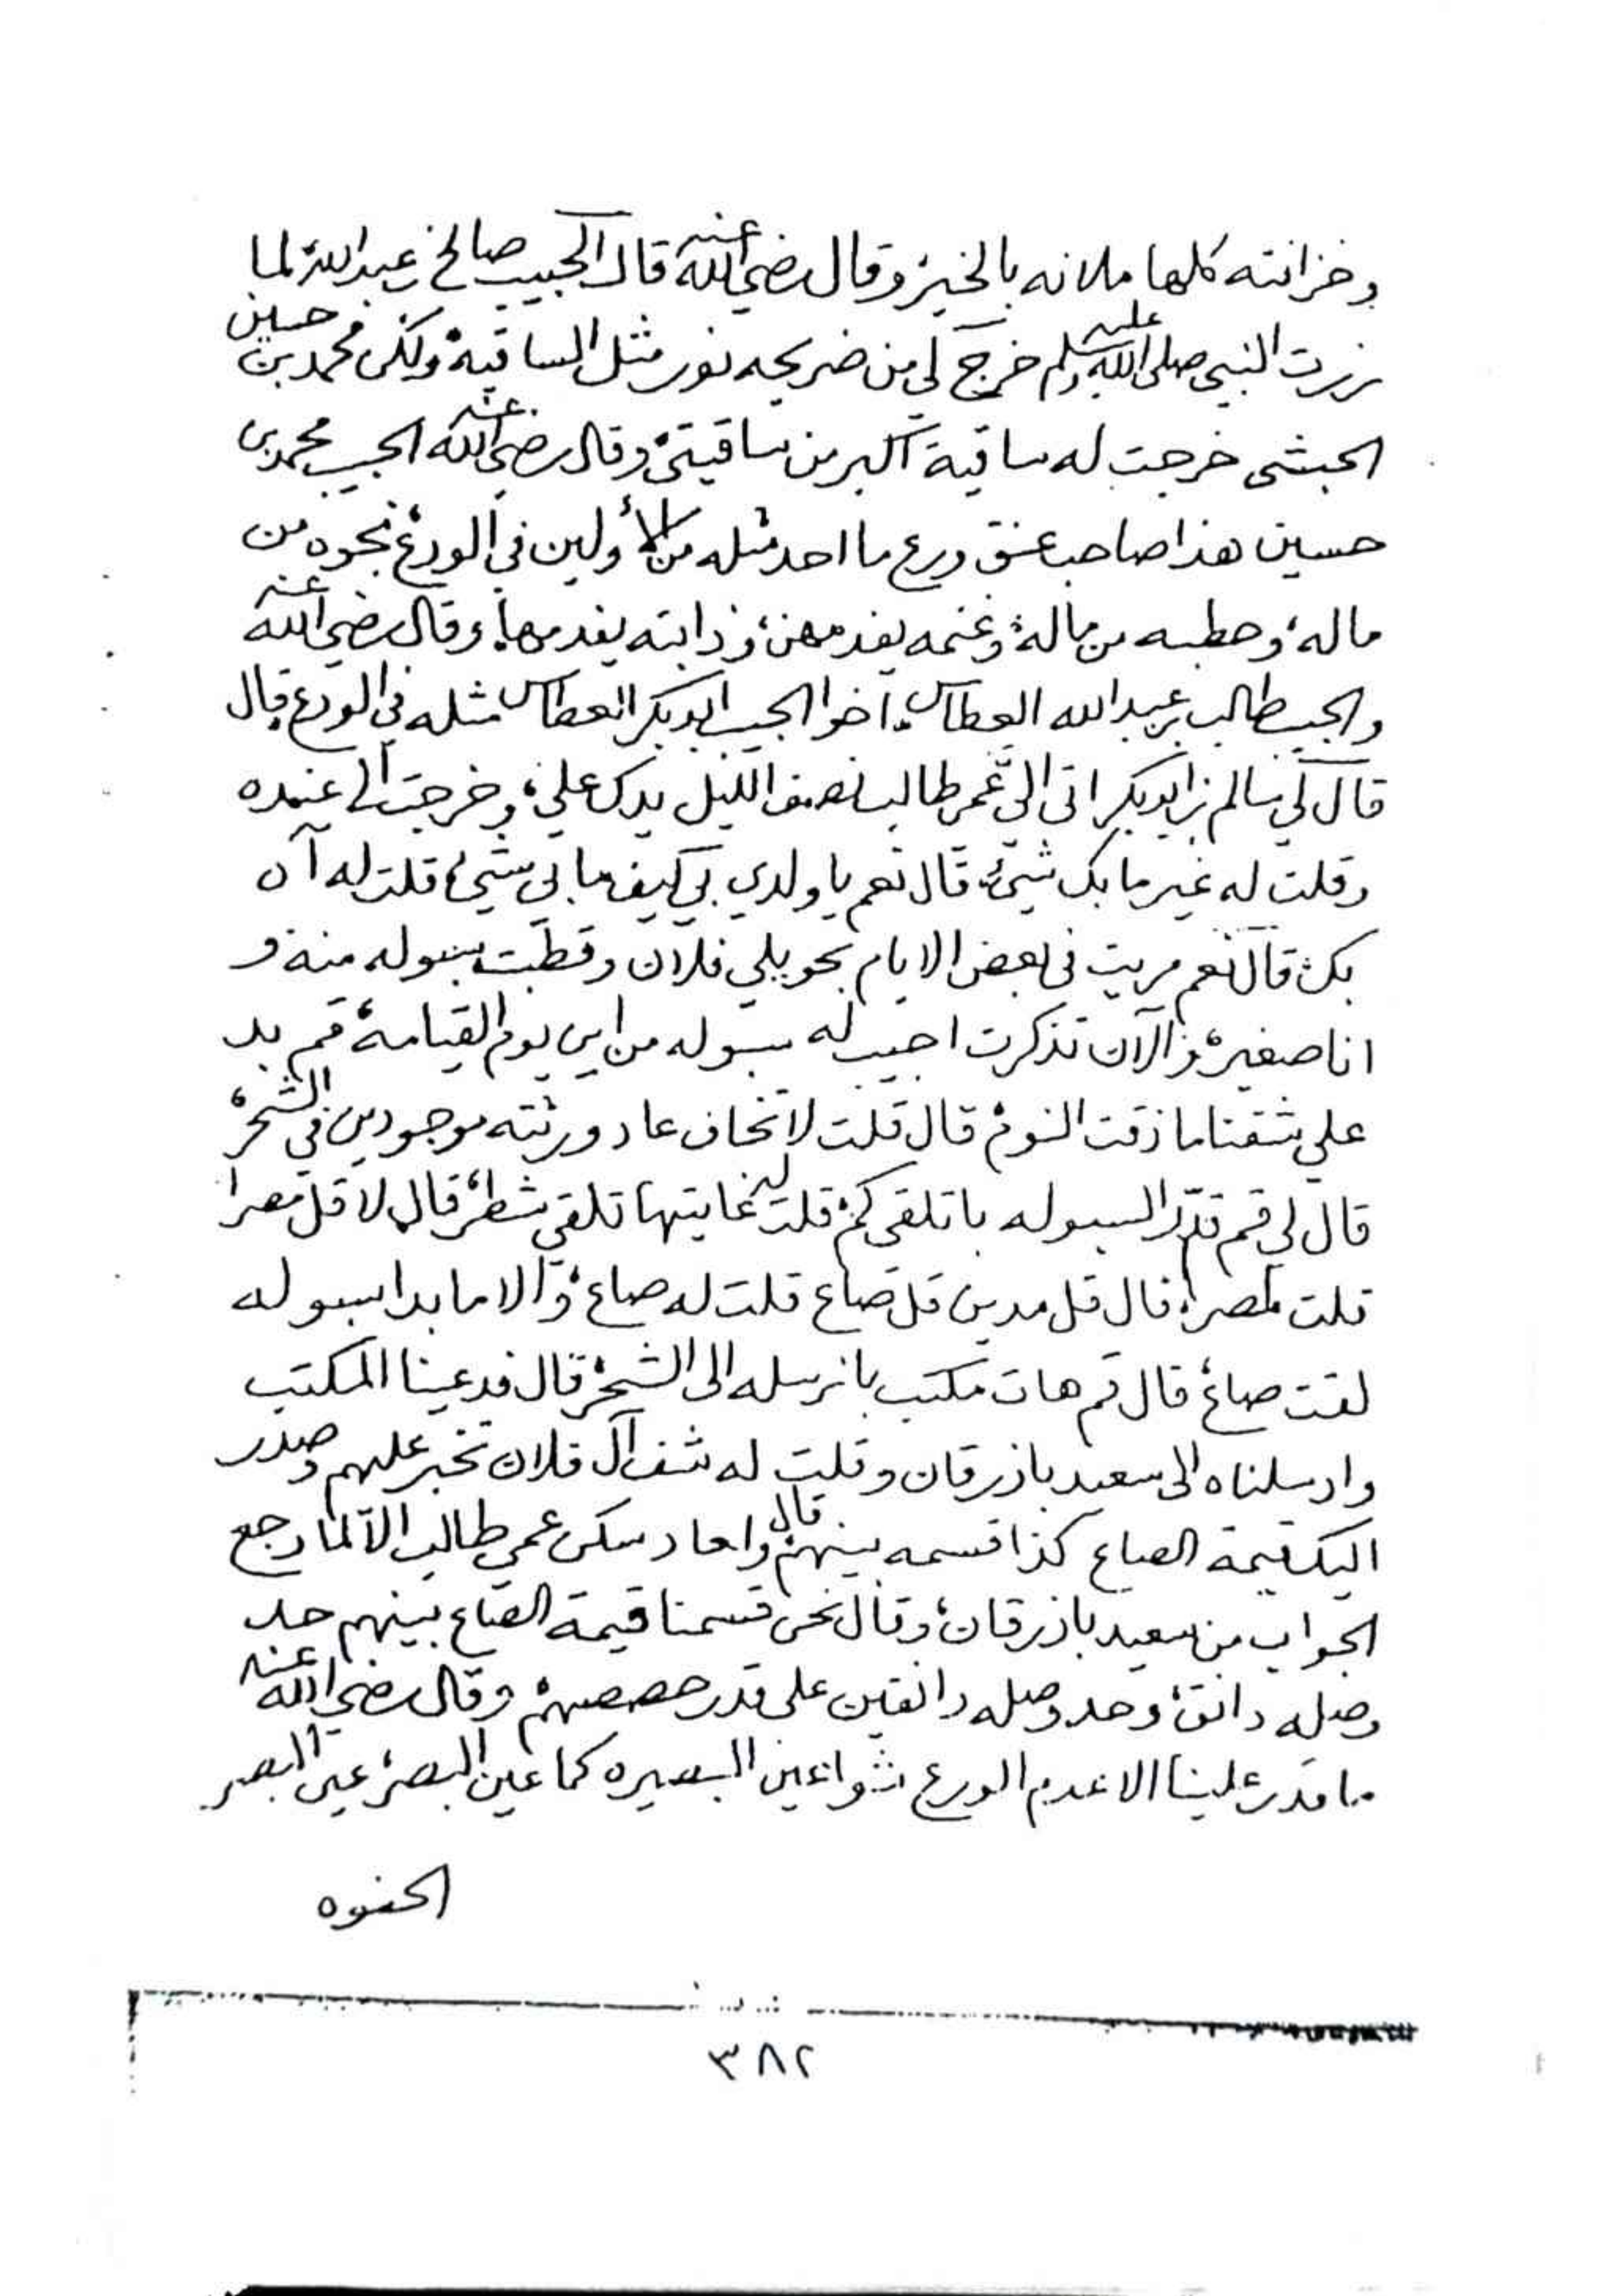 وخزانته كلها ملانه بالخير وقال رضي الله عنه قال الحبيب صالح بن عبدالله لما
زرت النبي صلى الله عليه وسلم خرج لي من ضريحه نور مثل الساقيه ولكن محمد بن حسين
الحبشي خرجت له ساقية اكبر من ساقيتي وقال رضي الله عنه الحبيب محمد بن
حسين هذا صاحب ورع ما احد مثله من الأولين في الورع قهوه من
ماله وحطبه من ماله وغنمه يقدمهن ودابته يقدمها وقال رضي الله عنه
والحبيب طالب بن عبدالله العطاس اخوا الحبيب ابوبكر العطاس مثله في الورع قال
قال لي سالم بن ابوبكر اتى الي عمي طالب نصف الليل يدك علي وخرجت الى عنده
وقلت له غير ما بك شيء قال نعم يا ولدي بي كيف ما بي شيء قلت له آه
بك قال نعم مريت في بعض الايام بحويلي فلان وقطبت سبوله منه و
انا صغير والآن تذكرت اجيب له سبوله من اين يوم القيامة قم بد
علي شفنا ما ذقت النوم قال قلت لا تخاف عاد ورثته موجودين في الشحر
قال لي قم قدّر السبوله با تلقي كم قلت له غايتها تلقي شطر قال لا قل مصرا
قلت مصرا قال قل مدين قل صاع قلت له صاع والا ما بدا سبوله
لقت صاع قال قم هات مكتب با نرسله الى الشحر قال فدعينا المكتب
وارسلناه الى سعيد باذرقان وقلت له شف آل فلان تخبر عليهم وصدر
اليك قيمة الصاع كذا قسمه بينهم قال واعاد سكن عمي طالب الا لما رجع
الجواب من سعيد باذرقان وقال نحن قسمنا قيمة الصاع بينهم حد
وصله دانق وحد وصله دانقين على قدر حصصهم وقال رضي الله عنه
ما قدر علينا الا عدم الورع شوا عين البصيره كما عين البصر عين البصر
٣٨٢